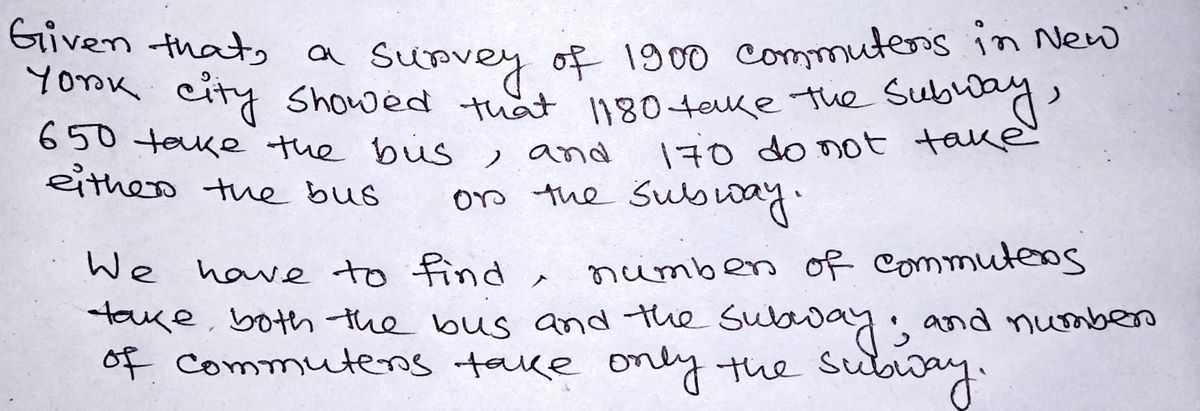 Given that, a survey of 1900 commuters in New
York city showed that 1180 take the subway,
650 take the bus, and 170 do not take
either the bus or the subway.
We have to find, number of commuters
take both the bus and the subway; and number
of commuters take only the subway.